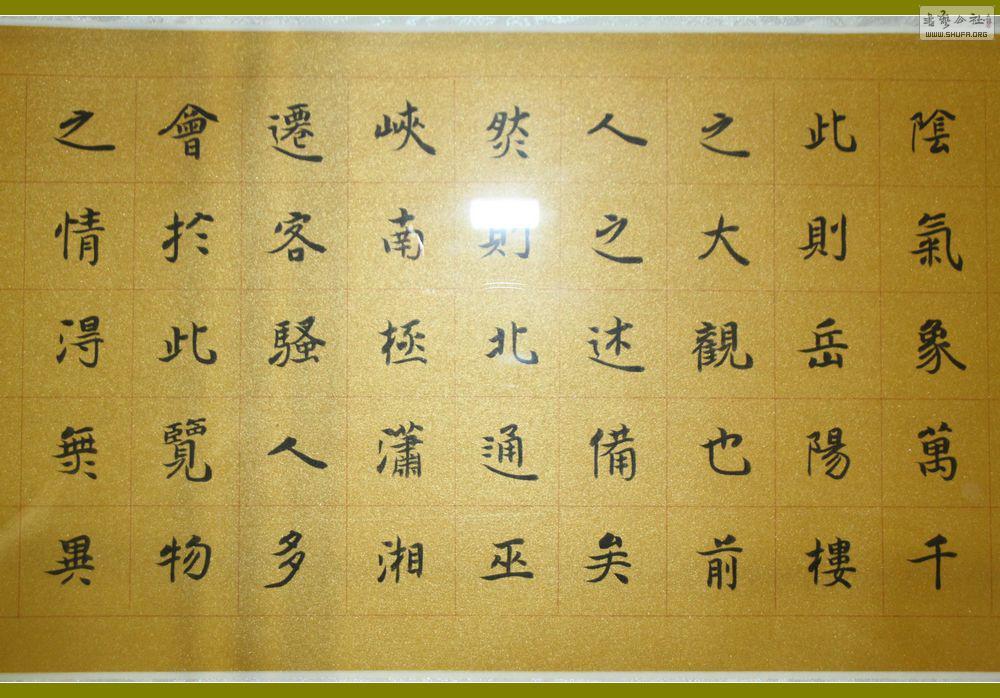 陰氣象萬千
此則岳陽樓
之大觀也前
人之述備矣
然則北通巫
峽南極瀟湘
遷客騷人多
會於此覽物
之情得無異
WWW.SHUFA.ORG